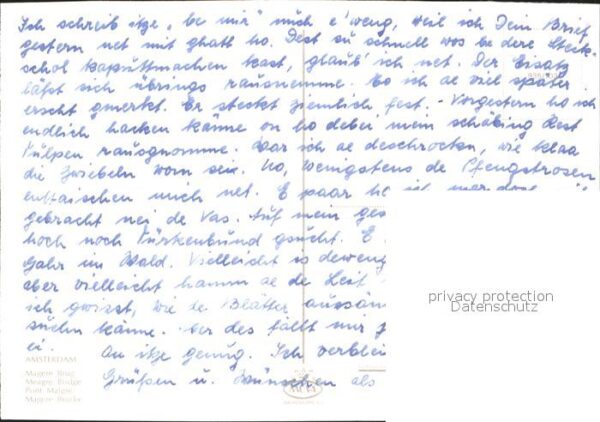 Ich schreib itze „be mir" mich e' weng, weil ich Dein Brief
gestern net mit ghatt ho. Dest zu schnell wos be dere Steck-
schol kaputtmachen kast, glaub' ich net. Der Eisatz
läßt sich übrings rausnemme. Ho ich ae viel später
erscht gmerkt. Er steckt ziemlich fest. - Vorgestern ho ich
endlich hacken känne on ho debei mein schäbing Rest
Tulpen rausgnomme. War ich ae deschrocken, wie klaa
die Zwiebeln worn sein. No, wenigstens de Pfengstrosen
enttaischen mich net. E paar ho ich mer
gebracht nei de Vas. Auf mein
hoch noch Türkenbund gsucht. E
Gahr im Wald. Vielleicht is deweng
aber vielleicht hamm ae de Leit
ich gwisst, wie de Blätter aussän
suchn känne. Aer des fällt mir
ei. An itze genung. Ich verblei
Grüßen u. Wünschen als
AMSTERDAM
Magere Brug
Meagre Bridge
Pont Maigre
Magere Brücke
privacy protection
Datenschutz